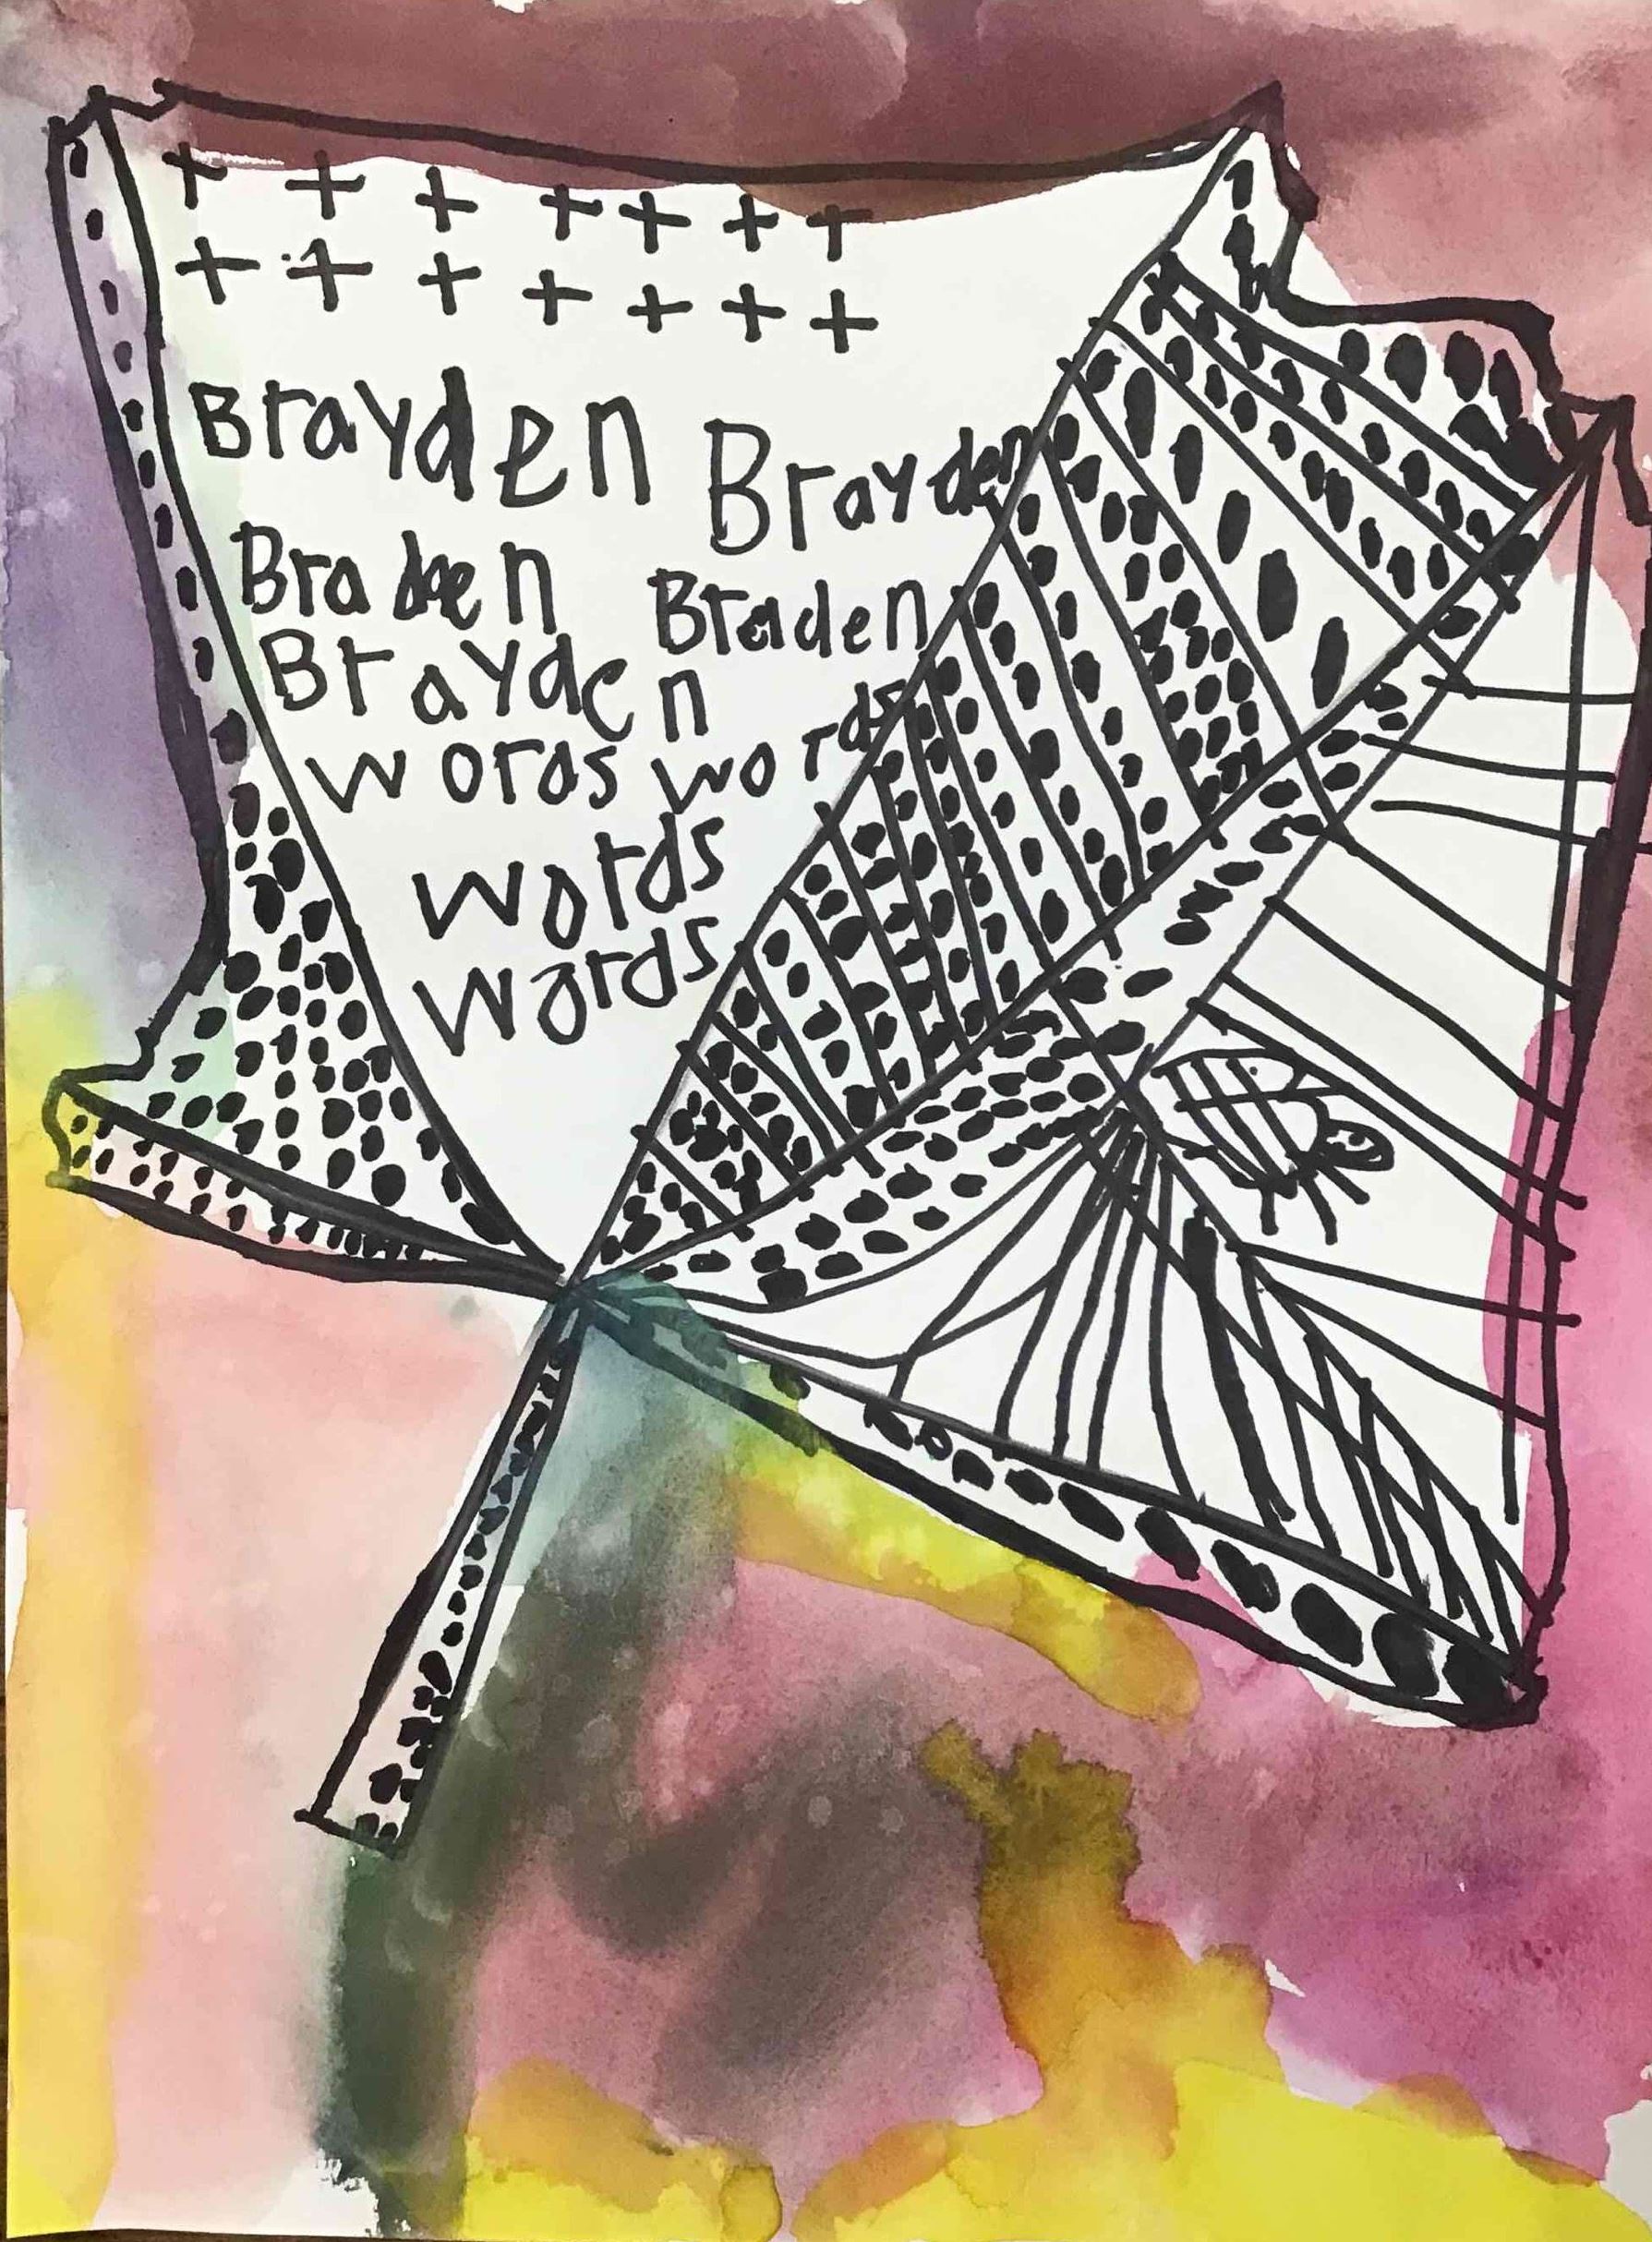 + + + + + + +
+ + + + + + +
Brayden Brayden
Braden Braden
Brayden
words words
words
words